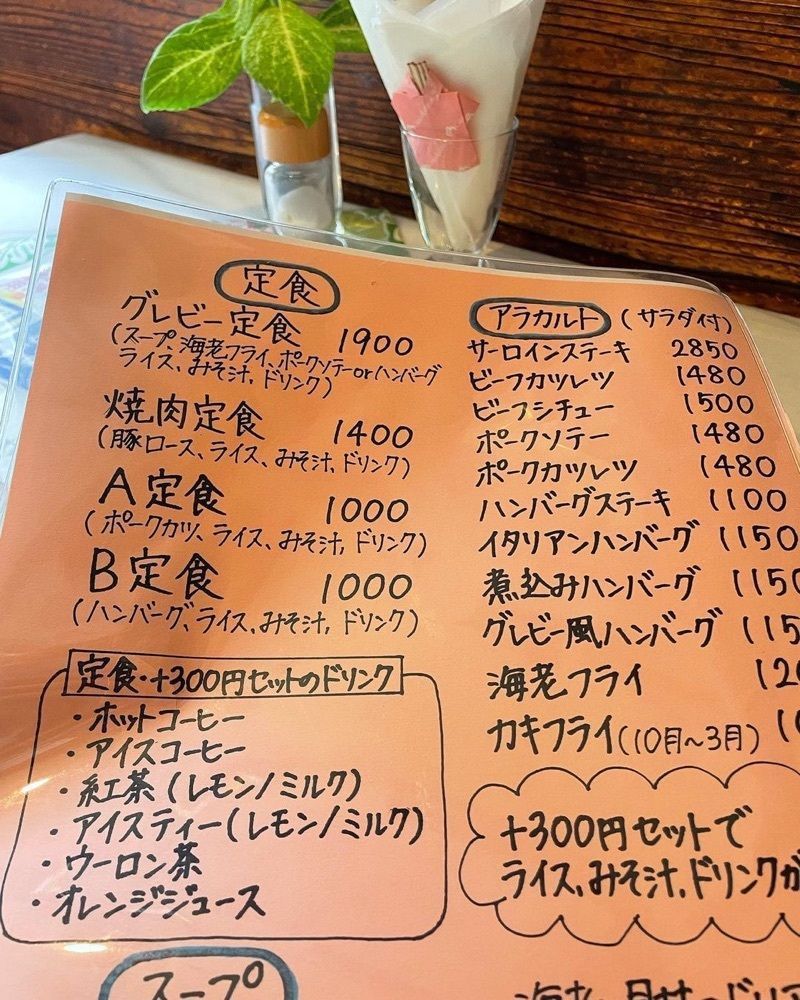 定食
グレビー定食 1900
(スープ、海老フライ、ポークソテーorハンバーグ
ライス、みそ汁、ドリンク)
焼肉定食 1400
(豚ロース、ライス、みそ汁、ドリンク)
A定食 1000
(ポークカツ、ライス、みそ汁、ドリンク)
B定食 1000
(ハンバーグ、ライス、みそ汁、ドリンク)
定食・+300円セットのドリンク
・ホットコーヒー
・アイスコーヒー
・紅茶(レモン/ミルク)
・アイスティー(レモン/ミルク)
・ウーロン茶
・オレンジジュース
スープ
アラカルト (サラダ付)
サーロインステーキ 2850
ビーフカツレツ 1480
ビーフシチュー 1500
ポークソテー 1480
ポークカツレツ 1480
ハンバーグステーキ 1100
イタリアンハンバーグ 1150
煮込みハンバーグ 1150
グレビー風ハンバーグ 115
海老フライ 120
カキフライ(10月~3月)
+300円セットで
ライス、みそ汁、ドリンクが